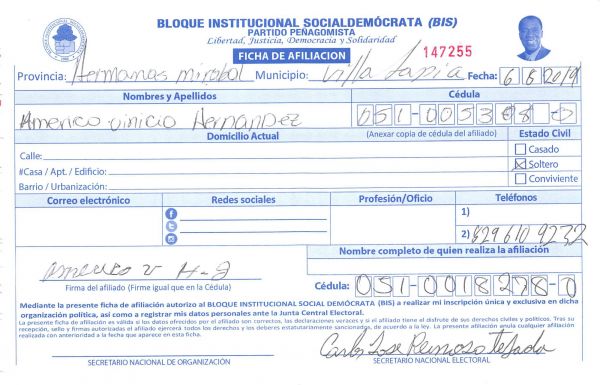 BLOQUE INSTITUCIONAL SOCIALDEMÓCRATA (BIS)
PARTIDO PEÑAGOMISTA
Libertad, Justicia, Democracia y Solidaridad
FICHA DE AFILIACION
147255
Provincia: Hermanas mirabal Municipio: Villa Tapia Fecha: 6 6 2019
Nombres y Apellidos Cédula
Americo vinicio Hernandez 051-0053
Domicilio Actual (Anexar copia de cédula del afiliado) Estado Civil
Calle: Casado
#Casa / Apt. / Edificio: Soltero
Barrio / Urbanización: Conviviente
Correo electrónico Redes sociales Profesión/Oficio Teléfonos
1)
2) 829 610 9232
Nombre completo de quien realiza la afiliación
Americo v H
Firma del afiliado (Firme igual que en la Cédula) Cédula: 051-0018278-0
Mediante la presente ficha de afiliación autorizo al BLOQUE INSTITUCIONAL SOCIAL DEMÓCRATA (BIS) a realizar mi inscripción única y exclusiva en dicha
organización política, así como a registrar mis datos personales ante la Junta Central Electoral.
La presente ficha de afiliación es válida si los datos ofrecidos por el afiliado son correctos, las declaraciones veraces y si el afiliado tiene el disfrute de sus derechos civiles y políticos. Tras su
recepción, sello y firmas autorizadas el afiliado ejercerá todos los derechos y los deberes estatutariamente sancionados, de acuerdo a la ley. La presente afiliación anula cualquier afiliación
realizada con anterioridad a la fecha que aparece en esta ficha.
Carlos Jose Reinoso Tejada
SECRETARIO NACIONAL DE ORGANIZACIÓN SECRETARIO NACIONAL ELECTORAL